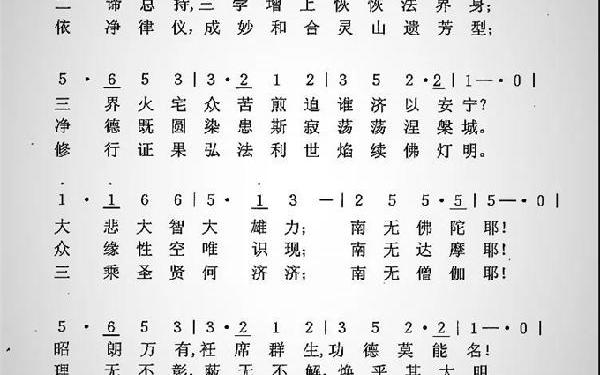 谛 总 持,三 学 增 上 恢 恢 法 界 身;
依 净 律 仪,成 妙 和 合 灵 山 遗 芳 型;
5 · 6 5 3 | 3 · 2 1 2 | 3 5 2 · 2 | 1 — · 0 |
三 界 火 宅 众 苦 煎 迫 谁 济 以 安 宁?
净 德 既 圆 染 患 斯 寂 荡 荡 涅 槃 城。
修 行 证 果 弘 法 利 世 焰 续 佛 灯 明。
1 · 1 6 6 | 5 · 1 3 — | 2 5 5 · 5 | 5 — · 0 |
大 悲 大 智 大 雄 力; 南 无 佛 陀 耶!
众 缘 性 空 唯 识 现; 南 无 达 摩 耶!
三 乘 圣 贤 何 济 济; 南 无 僧 伽 耶!
5 · 6 5 3 | 3 · 2 1 2 | 3 5 2 · 2 | 1 — · 0 |
昭 朗 万 有,衽 席 群 生,功 德 莫 能 名!
理 无 不 彰,蔽 无 不 解,焕 乎 其 大 明